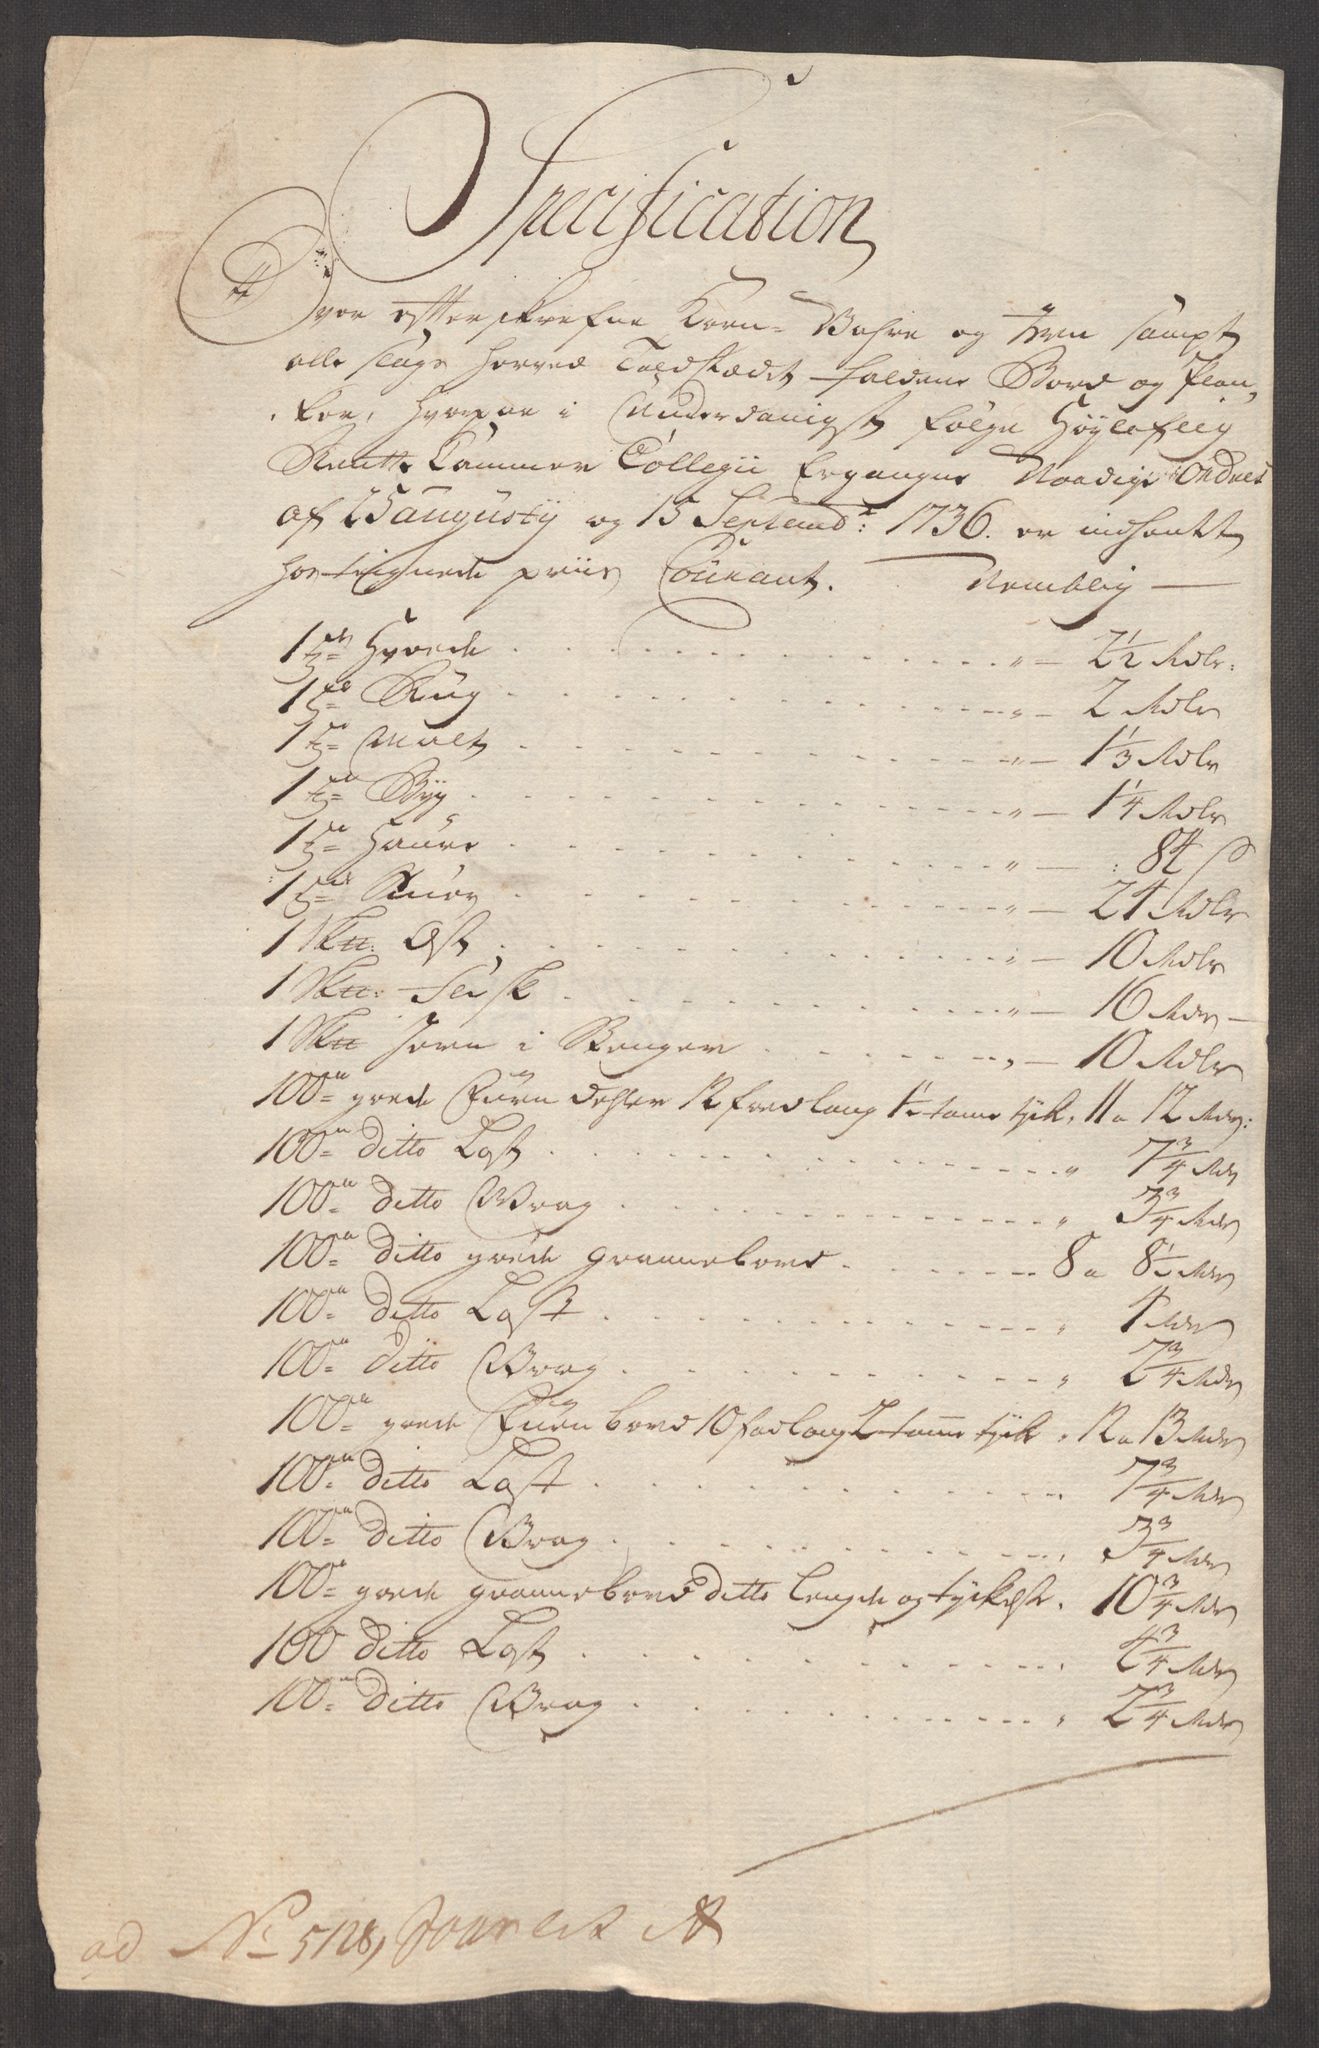 Specification
Hvor efterskrefne Korn- Vahre og Iern sampt
alle slags herved Toldstædet faldende Bord og Plan-
ker, hvorpaa i Underdanigst følge Höylofl:
Rentte Cammer Collegii Ergangne Naadige Ordres
af 25 augusty og 15 Septembr: 1736. er indhentet
 priis Courant. Nemblig
1 tde Hvede - 2 1/2 Rdlr:
1 tde Rug - 2 Rdlr
1 tde Malt - 1 1/3 Rdlr
1 tde Byg - 1 1/4 Rdlr
1 tde Haure - 84 s
1 tde Smør - 24 Rdlr
1 Sk℔: Ost - 10 Rdlr
1 Sk℔: Fersk - 16 Rdr
1 Sk℔ Jern i Stenger - 10 Rdlr
100de goede Furu dehler 12 foed lang 1 1/2 tomme tyk, 11 a 12 Rdr:
100de ditto Last - 7 3/4 Rdr
100de ditto Vrag - 3 3/4 Rdr
100de ditto goede granne bord - 8 a 8 1/2 Rdr
100de ditto Last - 4 Rdr
100de ditto Vrag - 2 3/4 Rdr
100de goede Furu bord 10 foed lang 2 tomme tyk, 12 a 13 Rdr
100de ditto Last - 7 3/4 Rdr
100de ditto Vrag - 3 3/4 Rdr
100de goede granne bord ditto Lengde og tykelse. 10 3/4 Rdr
100 ditto Last - 4 3/4 Rdr
100de ditto Vrag - 2 3/4 Rdr
ad No 5128,